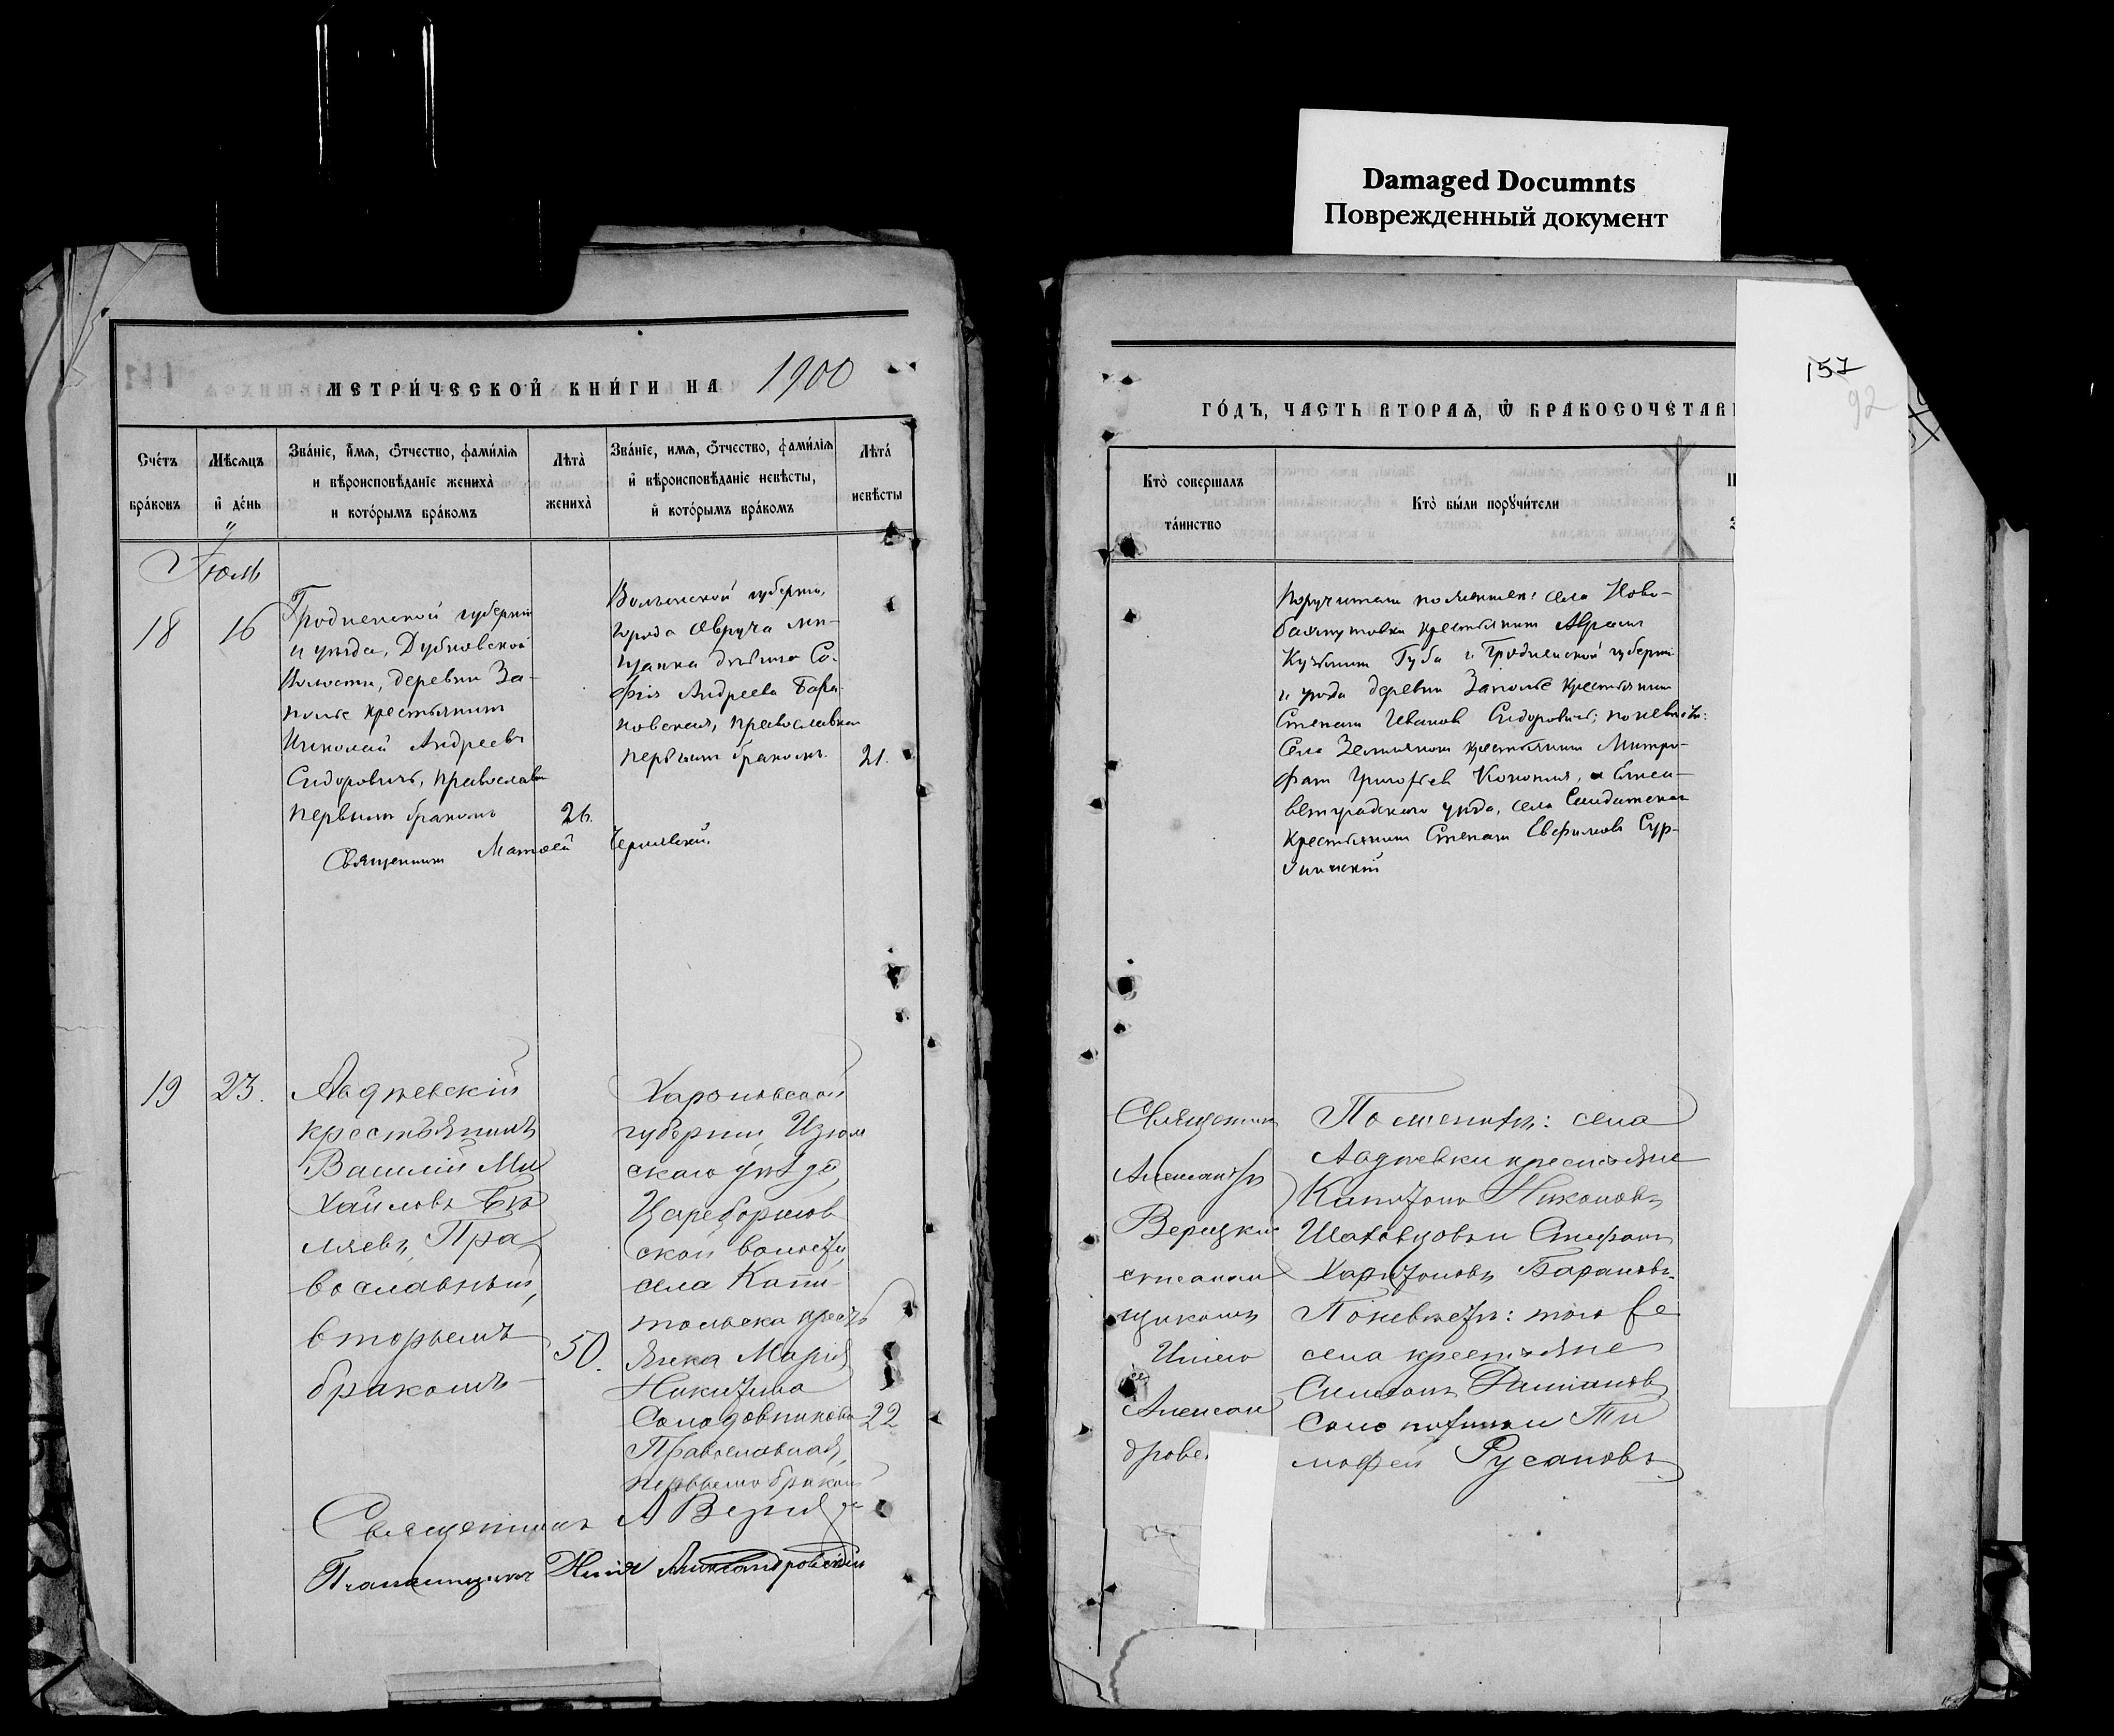 Damaged Documnts
Поврежденный документ
МЕТРИ́ЧЕСКОЙ КНИ́ГИ НА 1900
Сче́тъ бра́ковъ
Мѣсяцъ и де́нь
Зва́нїе, и́мя, ѻ҆́тчество, фами́лїя и вѣроисповѣ́данїе жениха̀ и кото́рымъ бра́комъ
Лѣта̀ жениха̀
Зва́нїе, имя, ѻ҆́тчество, фами́лїя и҆ вѣроисповѣ́данїе невѣ́сты, и҆ кото́рымъ бра́комъ
Лѣта́ невѣ́сты
Іюль
18
16
Гродненской губерніи
и уѣзда, Дубновской
Волости, деревни За-
полье крестьянинъ
Николай Андреевъ
Сидоровичъ, православн
первымъ бракомъ
26.
Волынской губерніи,
города Овруча мѣ-
щанка дѣвица Со-
фія Андреева Бара-
новская, православная
первымъ бракомъ.
21.
Священникъ Матѳей Чернявскій.
19
23.
крестьянинъ
Василій Ми
хайловъ Бѣ
ляевъ, Пра
вославный,
вторымъ
бракомъ
50.
Харьковской
губерніи, Изюм
скаго уѣзда,
Цареборисов
ской волости,
села Капи-
тольска кресть
янка Марія
Никитина
Солодовникова
22
Православная,
первымъ бракомъ
Священникъ А Вериц
Псаломщикъ Александровскій
157
92
ГО́ДЪ, ЧАСТЬ ВТОРАЯ, Ѽ БРАКОСОЧЕТАВ
Кто̀ совершалъ та́инство
Кто̀ бы́ли порꙋчи́тели
Поручители по женихѣ: села Ново-
крестьянинъ Аврамъ
Кузьминъ Губа и Гродненской губерніи
и уѣзда деревни Заполье крестьянинъ
Степанъ Ивановъ Сидоровичъ; по невѣстѣ:
Села крестьянинъ Митро-
фанъ Григорьев Конопля, и Елиса-
ветградскаго уѣзда, села
крестьянинъ Степанъ Евфимовъ Сур-
Священник
Александръ
Верицкій
съ псалом
щикомъ
Александрове
По женихѣ: села
крестьяне
Капитонъ Никоновъ
Шаховцовъ и Стефанъ
Харитоновъ Барановъ.
По невѣстѣ: того же
села крестьяне
Симеонъ Даміановъ
и Ти
мофей Русановъ